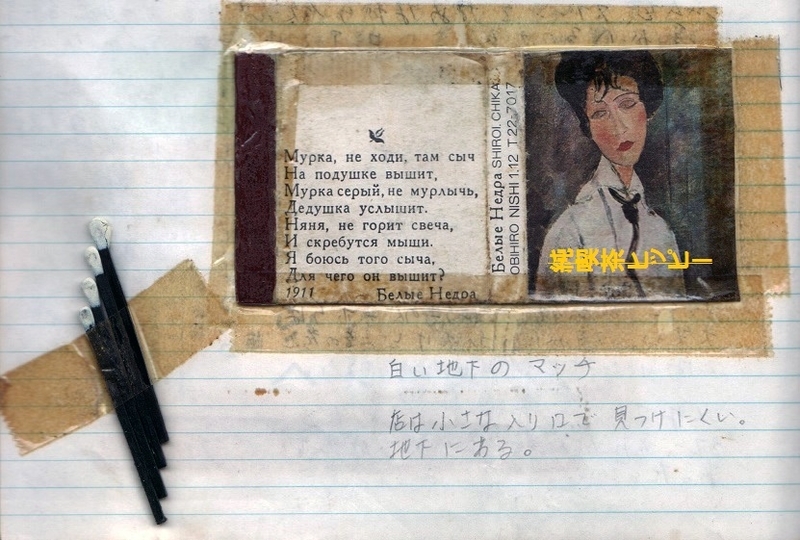 Мурка, не ходи, там сыч
На подушке вышит,
Мурка серый, не мурлычь,
Дедушка услышит.
Няня, не горит свеча,
И скребутся мыши.
Я боюсь того сыча,
Для чего он вышит?
1911 Белые Недра
Белые Недра SHIROI. CHIKA.
OBIHIRO NISHI 1.12 T 22-7017
純喫茶ヒッピー
白い地下の マッチ
店は小さな入り口で 見つけにくい。
地下にある。